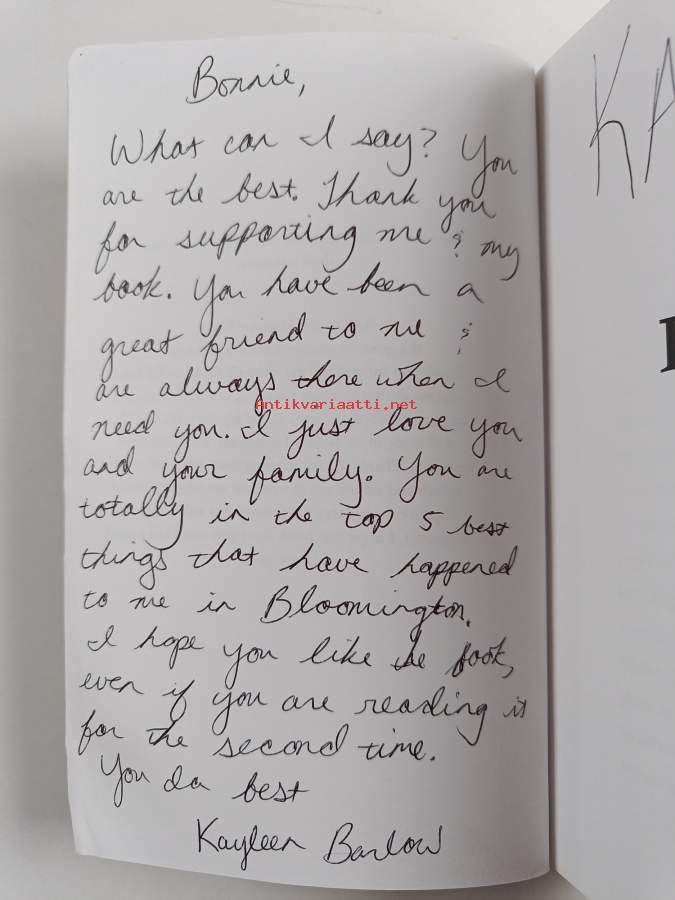 Bonnie,
What can I say? You
are the best. Thank you
for supporting me & my
book. You have been a
great friend to me &
are always there when I
Antikvariaatti.net
need you. I just love you
and your family. You are
totally in the top 5 best
things that have happened
to me in Bloomington.
I hope you like the book,
even if you are reading it
for the second time.
You da best
Kayleen Barlow
KA